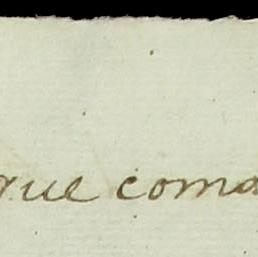 rue coma